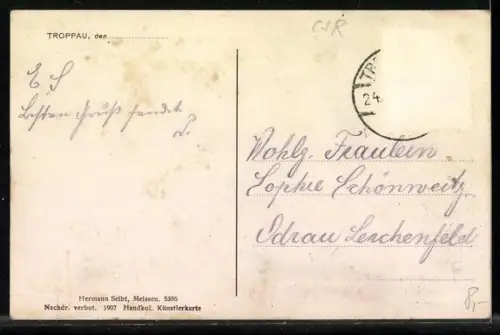 TROPPAU, den
ČSR
TR
24.
E S
Besten Gruß sendet
Wohlg. Fräulein
Sophie Schönweitz
Odrau Lerchenfeld
Hermann Seibt, Meissen. 5386
Nachdr. verbot. 1907 Handkol. Künstlerkarte
8,-